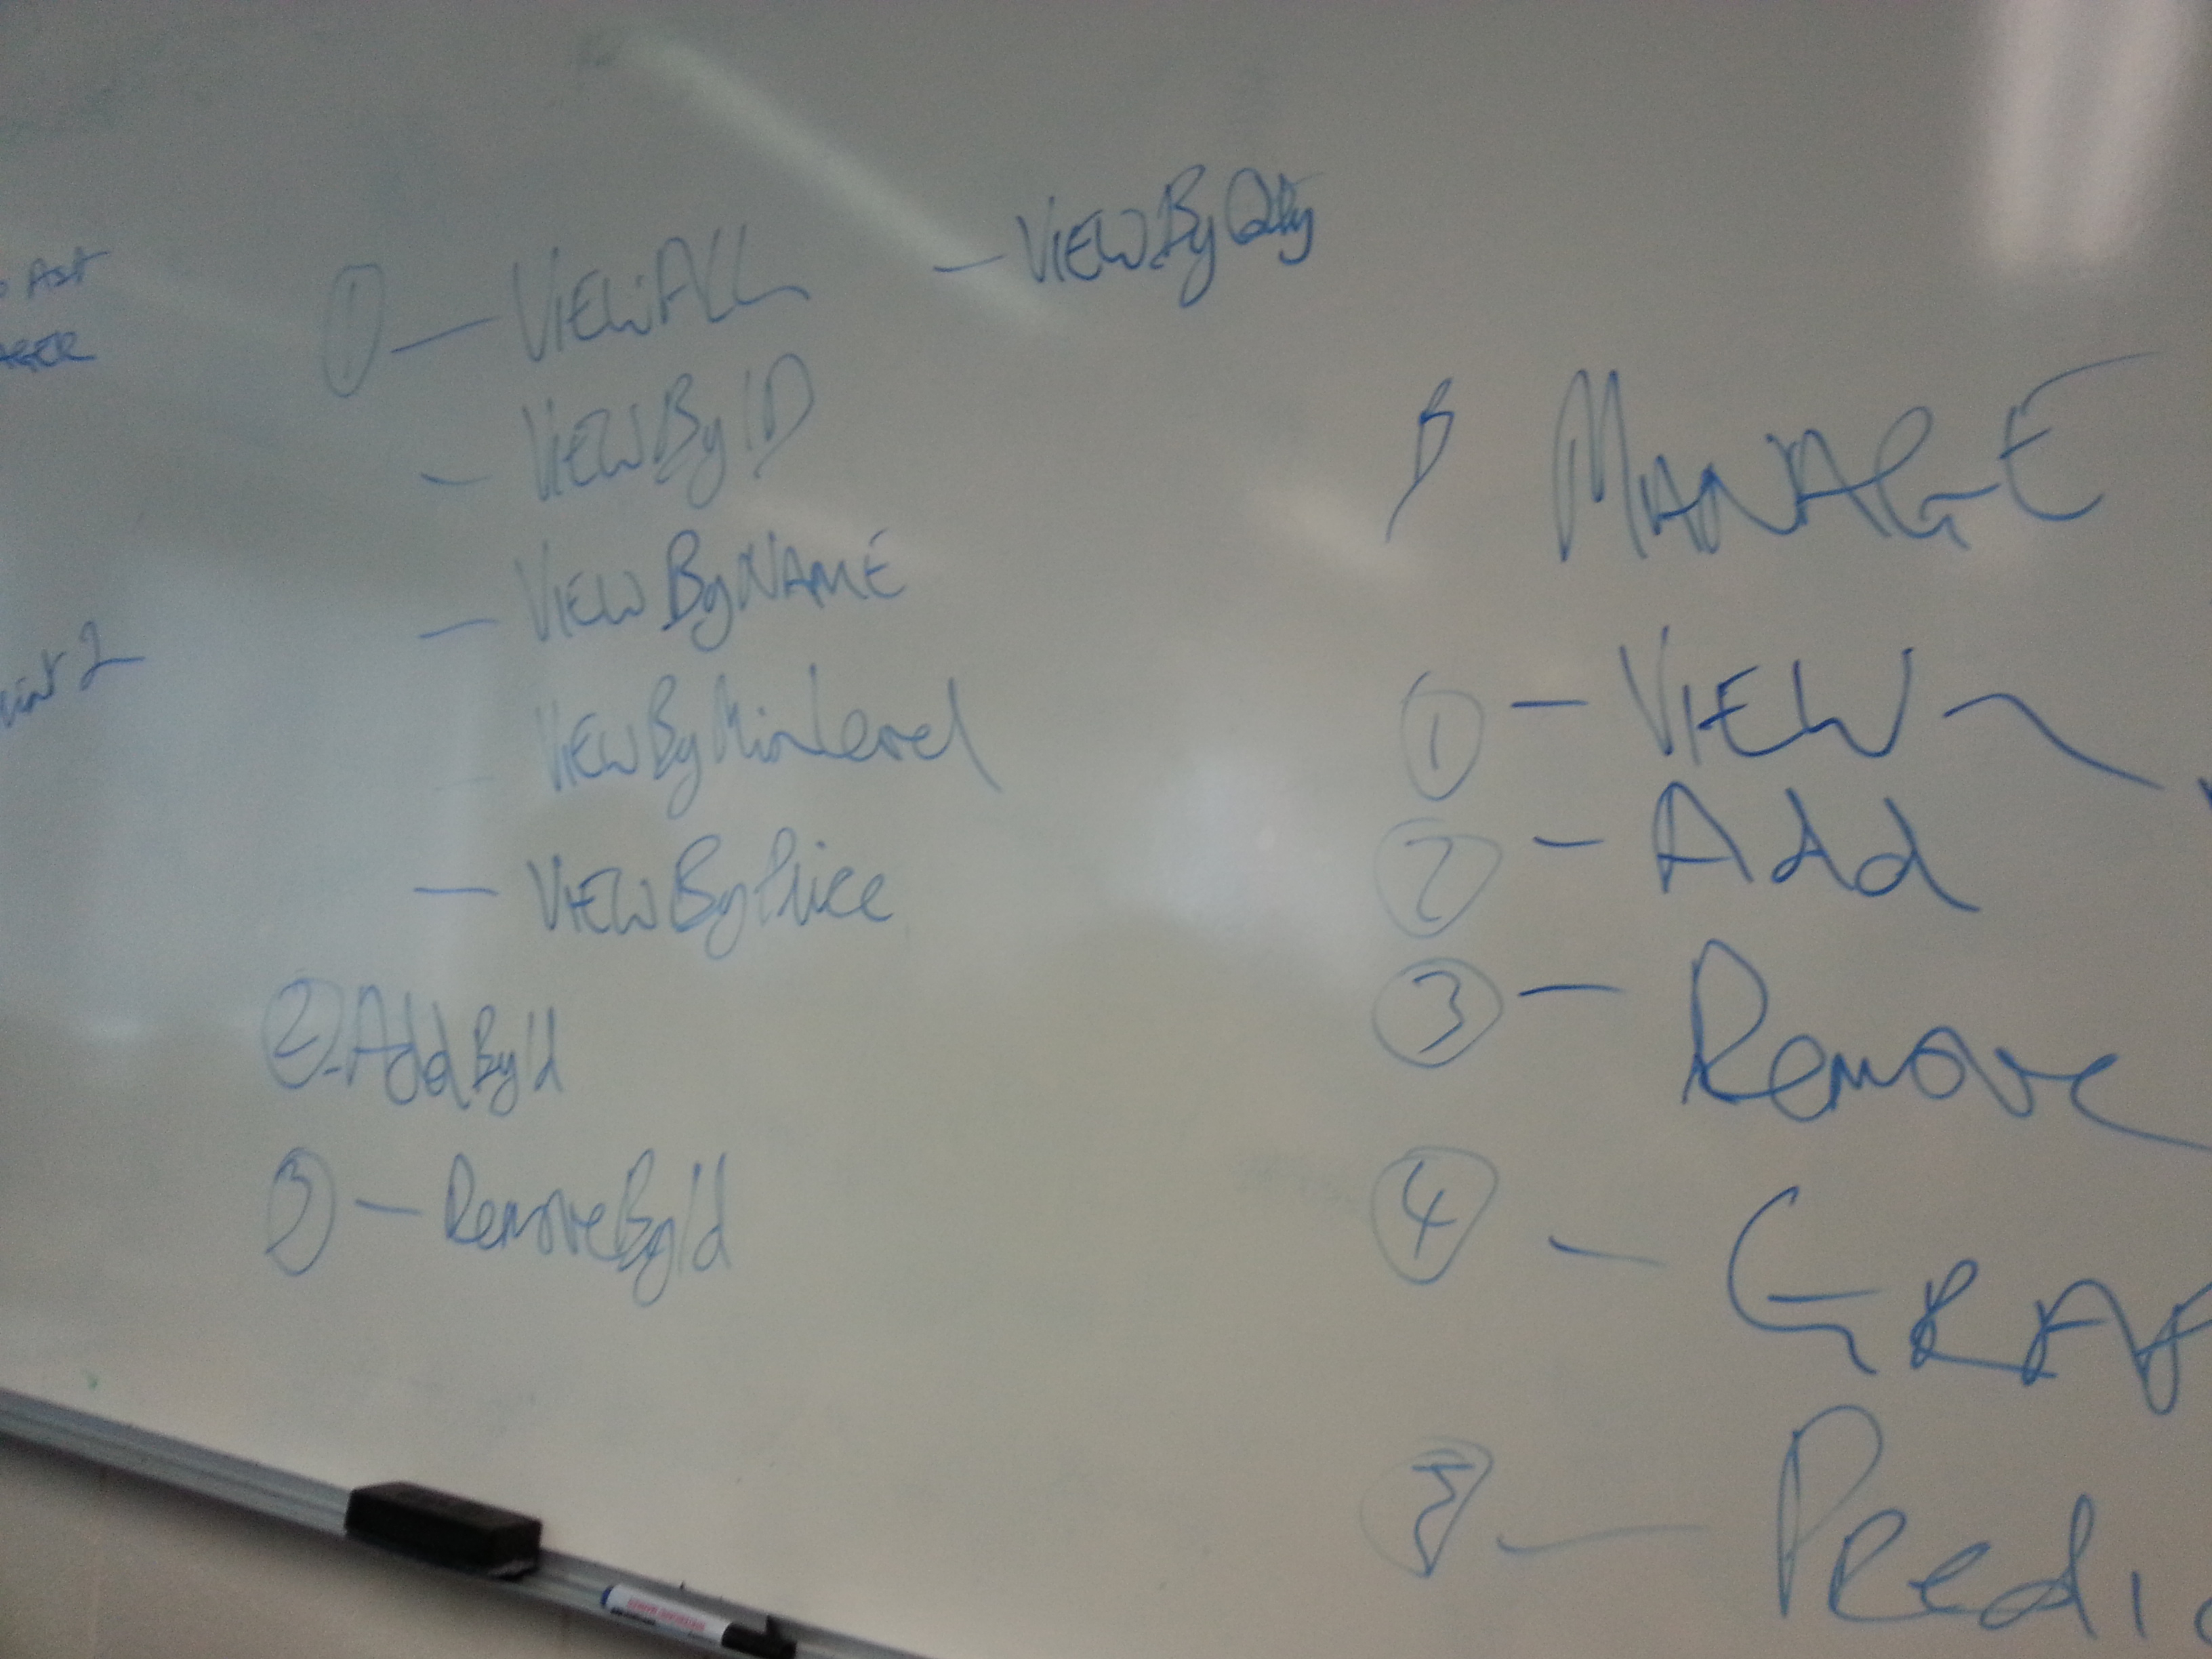 ① — VIEWALL
— VIEWByQty
— VIEWByID
— VIEWByNAME
- VIEWByMinLevel
— VIEWByPrice
② - AddById
③ — RemoveById
MANAGE
① — VIEW
② — Add
③ — Remove
④ — GRAP
⑤ — Predic